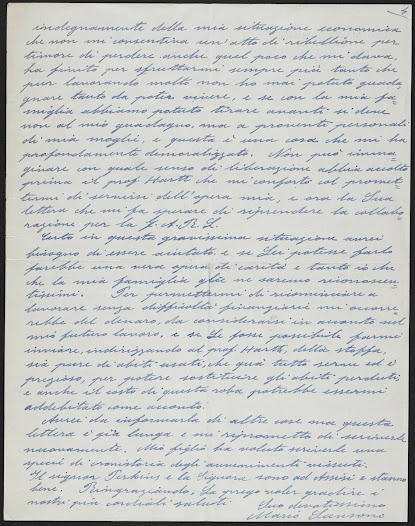 4
indegnamente della mia situazione economica
che non mi consentiva un'atto di ribellione per
timore di perdere anche quel poco che mi dava,
ha finito per sfruttarmi sempre più tanto che
pur lavorando molto non ho mai potuto guada-
gnare tanto da poter vivere, e se con la mia fa-
miglia abbiamo potuto tirare avanti si deve
non al mio guadagno, ma a proventi personali
di mia moglie, e questa è una cosa che mi ha
profondamente demoralizzato. Non può imma-
ginare con quale senso di liberazione abbia accolto
prima il prof Hartt che mi confortò col promet-
termi di servirsi dell'opera mia, e ora la Sua
lettera che mi fa sperare di riprendere la collabo-
razione per la F.A.R.L.
Certo in questa gravissima situazione avrei
bisogno di essere aiutato e se Lei potesse farlo
farebbe una vera opera di carità e tanto io che
che la mia famiglia gliene saremo riconoscen-
tissimi. Per permettermi di ricominciare a
lavorare senza difficoltà finanziarie mi occor-
rebbe del denaro, da considerarsi in acconto sul
mio futuro lavoro, e se Le fosse possibile farmi
inviare, indirizzando al prof. Hartt, della stoffa,
sia pure di abiti usati, che quà tutto serve ed è
prezioso, per potere sostituire gli abiti perduti,
e anche il costo di questa roba potrebbe essermi
addebitato come acconto.
Avrei da informarla di altre cose ma questa
lettera è già lunga e mi riprometto di scriverle
nuovamente. Mio figlio ha voluto scriverle una
specie di cronistoria degli avvenimenti vissuti.
Il signor Perkins e la Signora sono ad Assisi e stanno
bene. Ringraziandola, La prego voler gradire i
nostri più cordiali saluti
Suo devotissimo
Mario Sansoni